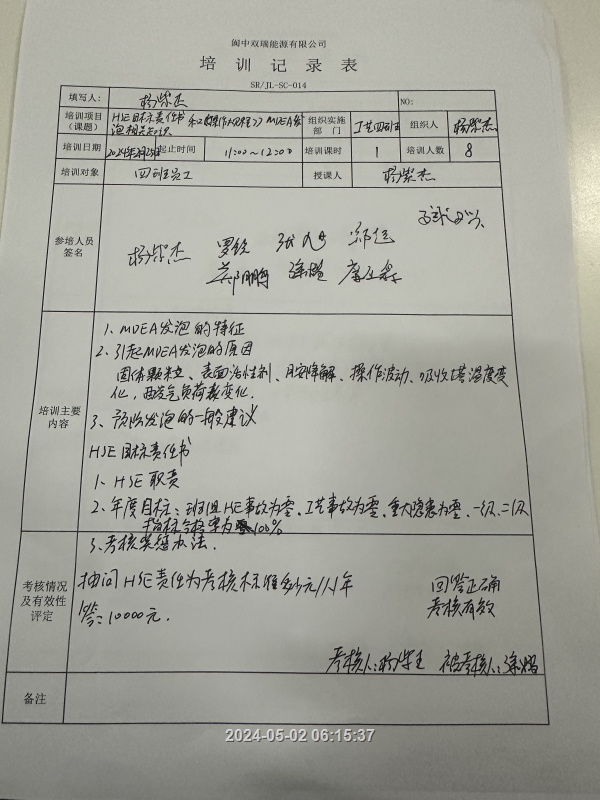 阆中双瑞能源有限公司
培训记录表
SR/JL-SC-014
填写人： 杨紫杰 NO:
培训项目（课题） HSE目标责任书和《操作规程》MDEA发泡相关知识 组织实施部门 工艺四班 组织人 杨紫杰
培训日期 起止时间 11:00~12:00 培训课时 1 培训人数 8
培训对象 四班员工 授课人 杨紫杰
参培人员签名
杨紫杰 罗钦
郑鹏
培训主要内容
1、MDEA发泡的特征
2、引起MDEA发泡的原因
固体颗粒、表面活性剂、胺降解、操作波动、吸收塔温度变
化，负荷变化.
3、预防发泡的一般建议
HSE目标责任书
1、HSE职责
2、年度目标：班组HE事故为零、工艺事故为零、重大隐患为零、一级、二级
指标合格率为100%
3、考核奖惩办法.
考核情况及有效性评定
抽问HSE责任为考核标准多少元/人/年
答：10000元.
回答正确
考核有效
考核人：杨紫杰 被考核人：徐熠
备注
2024-05-02 06:15:37